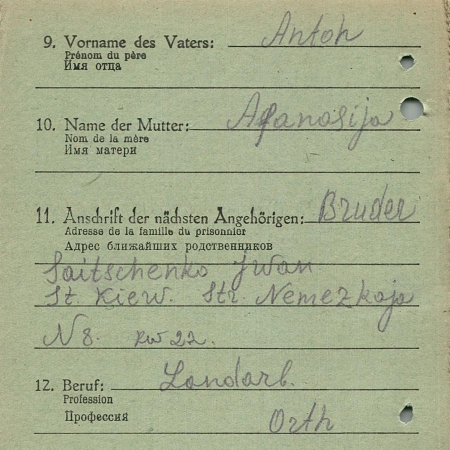 9. Vorname des Vaters: Anton
Prénom du père
Имя отца
10. Name der Mutter: Afanasija
Nom de la mère
Имя матери
11. Anschrift der nächsten Angehörigen: Bruder
Adresse de la famille du prisonnier
Адрес ближайших родственников
Saitschenko Jwan
St. Kiew. Str. Nemezkaja
N 8. kw 22.
12. Beruf: Landarb.
Profession
Профессия
Orth